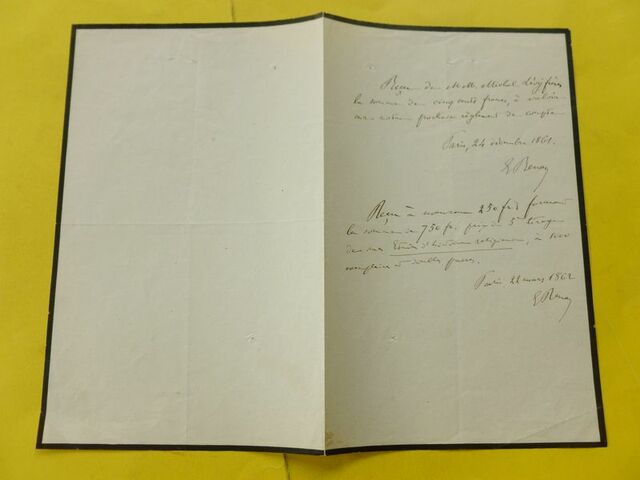 Reçu de MM. Michel Lévy frères
la somme de cinq cents francs, à valoir
sur notre prochain règlement de compte
Paris, 24 décembre 1861.
E. Renan
Reçu à nouveau 250 fr, formant
la somme de 750 fr, prix du 5e tirage
de mes Études d'histoire religieuse, à 1000
exemplaires doubles passes.
Paris, 22 mars 1862
E. Renan